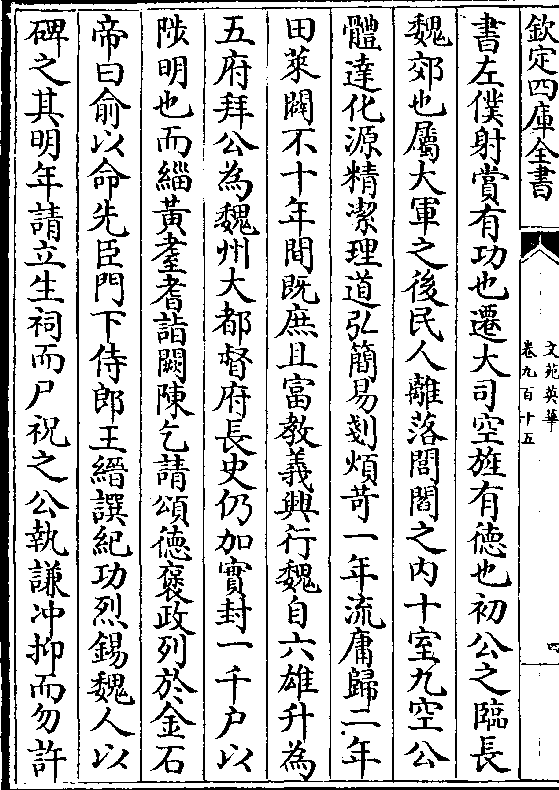 欽定四庫全書
文苑英華
卷九百十五
四
書左僕射賞有功也遷大司空旌有德也初公之臨長
魏郊也屬大軍之後民人離落閭閻之內十室九空公
體達化源精潔理道弘簡易剗煩苛一年流庸歸二年
田萊闢不十年間既庶且富教義興行魏自六雄升為
五府拜公為魏州大都督府長史仍加實封一千户以
陟明也而緇黃耋耆詣闕陳乞請頌德褒政列於金石
帝曰俞以命先臣門下侍郎王縉譔紀功烈錫魏人以
碑之其明年請立生祠而尸祝之公執謙冲抑而勿許